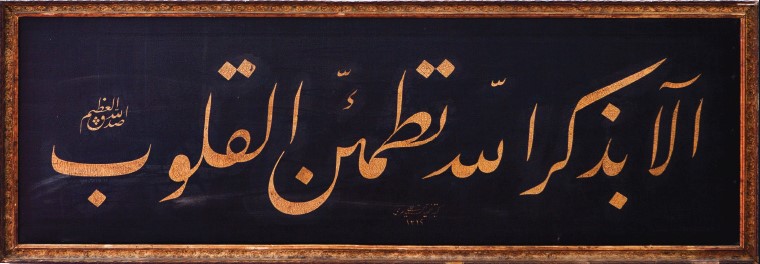 الا بذکر الله تطمئن القلوب
صدق الله العظیم